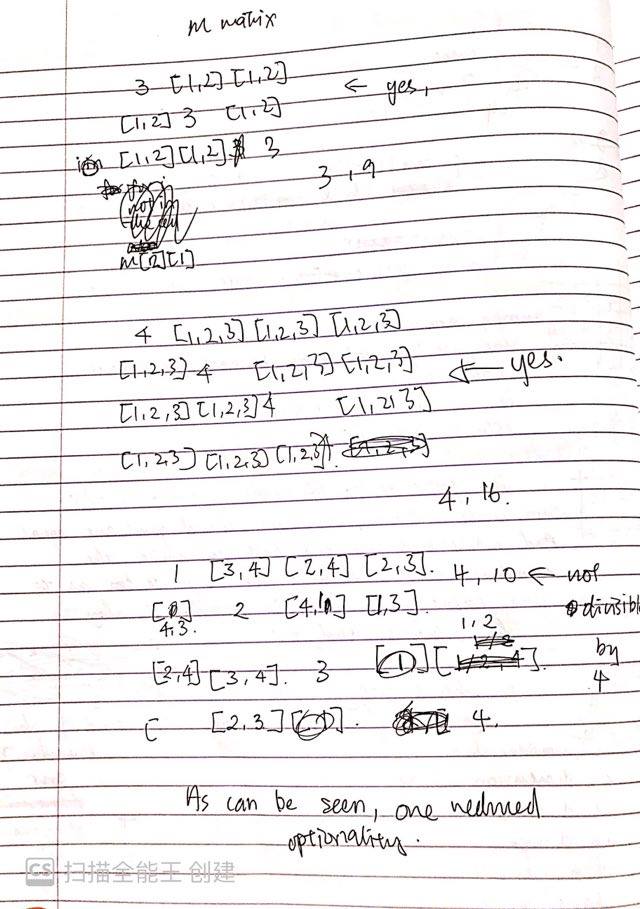 m matrix
3 [1,2] [1,2]
← yes,
[1,2] 3 [1,2]
[1,2] [1,2] 3
3, 9
m[2][1]
4 [1,2,3] [1,2,3] [1,2,3]
[1,2,3] 4 [1,2,3] [1,2,3]
← yes.
[1,2,3] [1,2,3] 4 [1,2,3]
[1,2,3] [1,2,3] [1,2,3] 4.
4, 16.
1 [3,4] [2,4] [2,3]. 4, 10 ← not
[4,3. 2 [4,1] [1,3]. divisible
1, 2
[2,4] [3,4]. 3 [1] [ ]. by
4
[ [2,3] [ ]. 4.
As can be seen, one
optionality.
CS 扫描全能王 创建